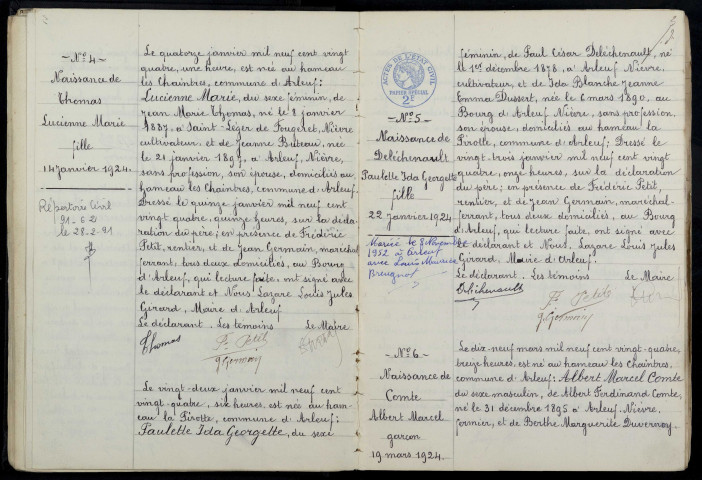 —N°4—
Naissance de
Thomas
Lucienne Marie
fille
14 janvier 1924.
Répertoire Civil
91-6
le 28-2-91
Le quatorze janvier mil neuf cent vingt
quatre, une heure, est née au hameau
les Chaintres, commune d'Arleuf:
Lucienne Marie, du sexe féminin, de
Jean Marie Thomas, né le 8 janvier
1887 à Saint-Léger de Fougeret, Nièvre
cultivateur et de Jeanne Buteau, née
le 21 janvier 1897, à Arleuf, Nièvre,
sans profession, son épouse, domiciliés au
hameau les Chaintres, commune d'Arleuf.
Dressé le quinze janvier mil neuf cent
vingt quatre, quinze heures, sur la décla-
ration du père; en présence de Frédéric
Petit, rentier, et de Jean Germain, maréchal
ferrant, tous deux domiciliés, au Bourg
d'Arleuf, qui lecture faite, ont signé avec
le déclarant et Nous, Lazare Louis Jules
Girard, Maire d'Arleuf.
Le déclarant. Les témoins Le Maire
Thomas F. Petit
J. Germain
Le vingt-deux janvier mil neuf cent
vingt-quatre, six heures, est née au ham-
eau la Pirotte, commune d'Arleuf:
Paulette Ida Georgette, du sexe
ACTES DE L'ÉTAT CIVIL
PAPIER SPÉCIAL
2F
—N°5—
Naissance de
Deléchenault
Paulette Ida Georgette
fille
22 janvier 1924
Mariée le 8 Novembre
1952 à Arleuf
avec Louis Maurice
Breugnot
féminin, de Paul César Deléchenault, né
le 1er décembre 1878, à Arleuf Nièvre,
cultivateur, et de Ida Blanche Jeanne
Emma Dussert, née le 6 mars 1890, au
Bourg d'Arleuf Nièvre, sans profession,
son épouse, domiciliés au hameau la
Pirotte, commune d'Arleuf; Dressé le
vingt-trois janvier mil neuf cent vingt
quatre, onze heures, sur la déclaration
du père; en présence de Frédéric Petit,
rentier, et de Jean Germain, maréchal-
ferrant, tous deux domiciliés, au Bourg
d'Arleuf, qui lecture faite, ont signé avec
le déclarant et Nous, Lazare Louis Jules
Girard, Maire d'Arleuf.
Le déclarant. Les témoins Le Maire
Deléchenault F. Petit
J. Germain
—N°6—
Naissance de
Comte
Albert Marcel
garçon
19 mars 1924.
Le dix-neuf mars mil neuf cent vingt-quatre,
treize heures, est né au hameau les Chaintres,
commune d'Arleuf: Albert Marcel Comte
du sexe masculin, de Albert Ferdinand Comte,
né le 31 décembre 1895 à Arleuf Nièvre,
fermier, et de Berthe Marguerite Duvernoy